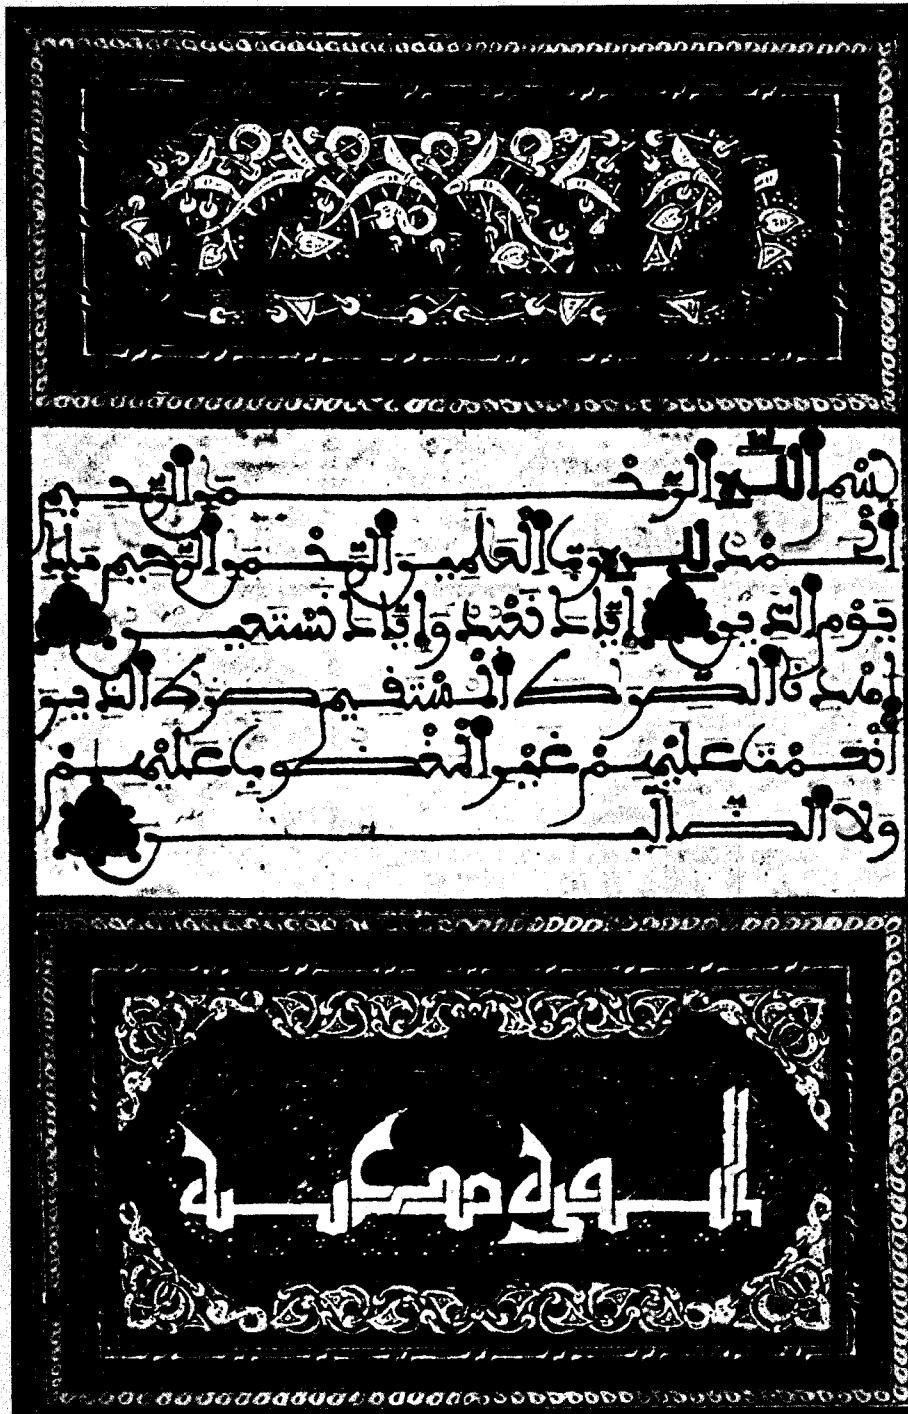 بسم الله الرحمن الرحيم
الحمد لله رب العلمين الرحمن الرحيم ملك
يوم الدين إياك نعبد وإياك نستعين
اهدنا الصراط المستقيم صراط الذين
أنعمت عليهم غير المغضوب عليهم
ولا الضالين